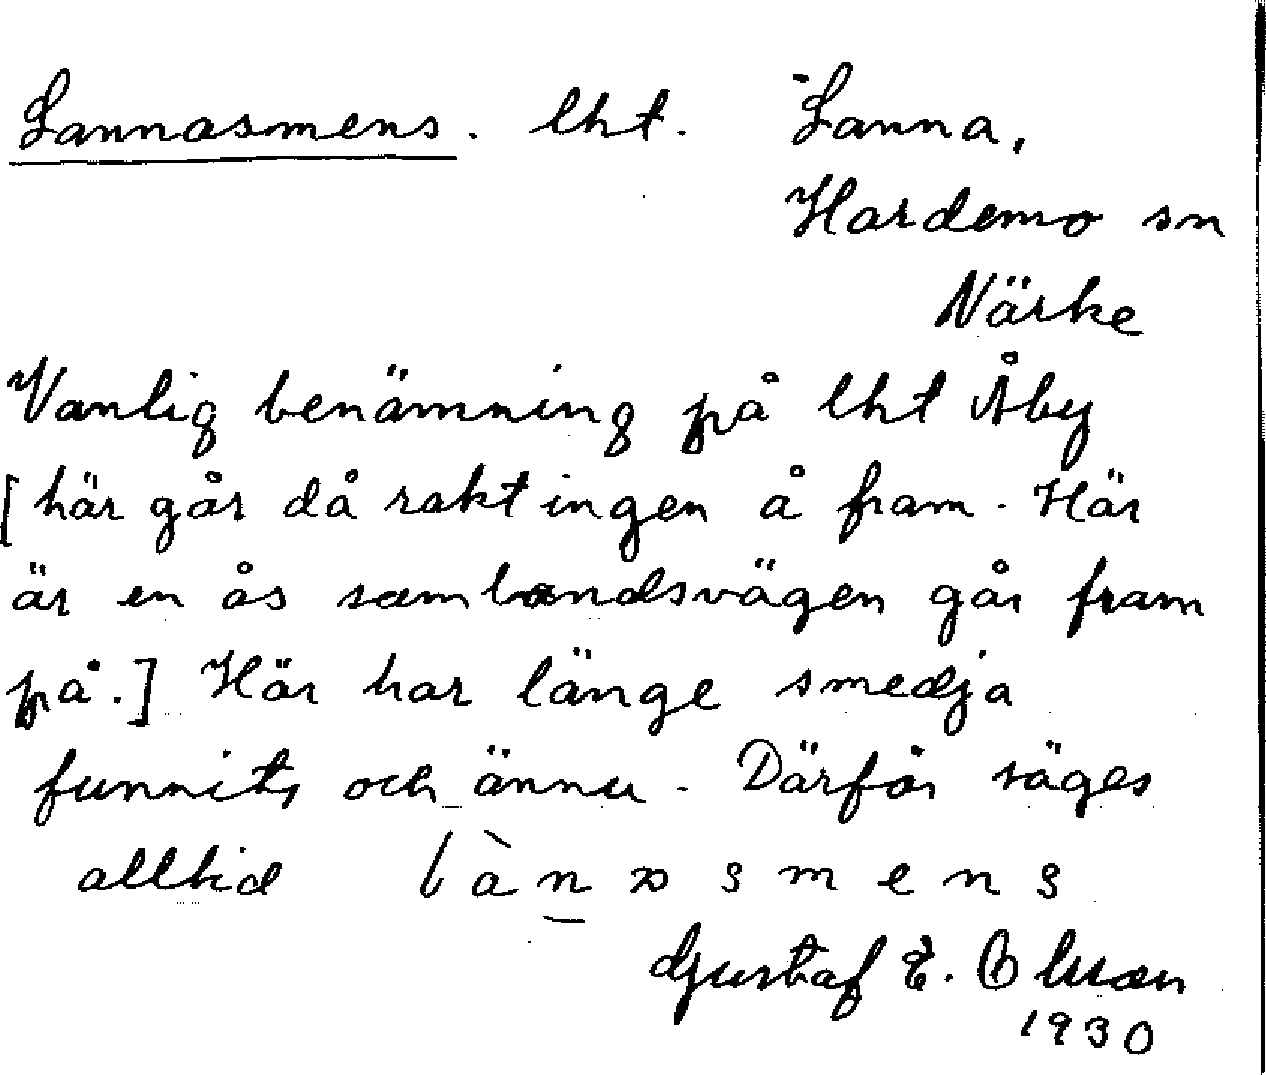 Lannasmens. lht. Lanna,
Hardemo sn
Närke
Vanlig benämning på lht Åby
[här går då rakt ingen å fram. Här
är en ås som landsvägen går fram
på.] Här har länge smedja
funnits och ännu. Därför säges
alltid smens
Gustaf E. Olsson
1930